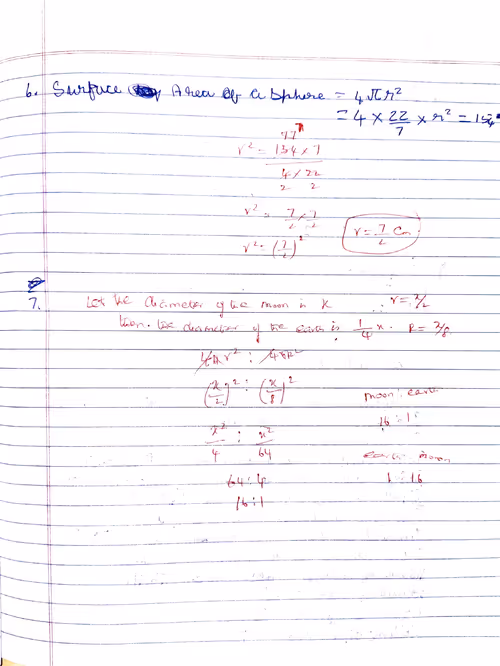 6. Surface Area of a Sphere = 4πr²
= 4 × 22/7 × r² = 154
77
r² = 154 × 7
4 × 22
2 2
r² = 7/2 × 7/2
r² = (7/2)² r = 7/2 Cm
7. Let the diameter of the moon is x ∴ r = x/2
then the diameter of the earth is 1/4 x. R = x/8
4πr² : 4πR²
(x/2)² : (x/8)²
moon : earth
16 : 1
x²/4 : x²/64
earth : moon
64 : 4 1 : 16
16 : 1